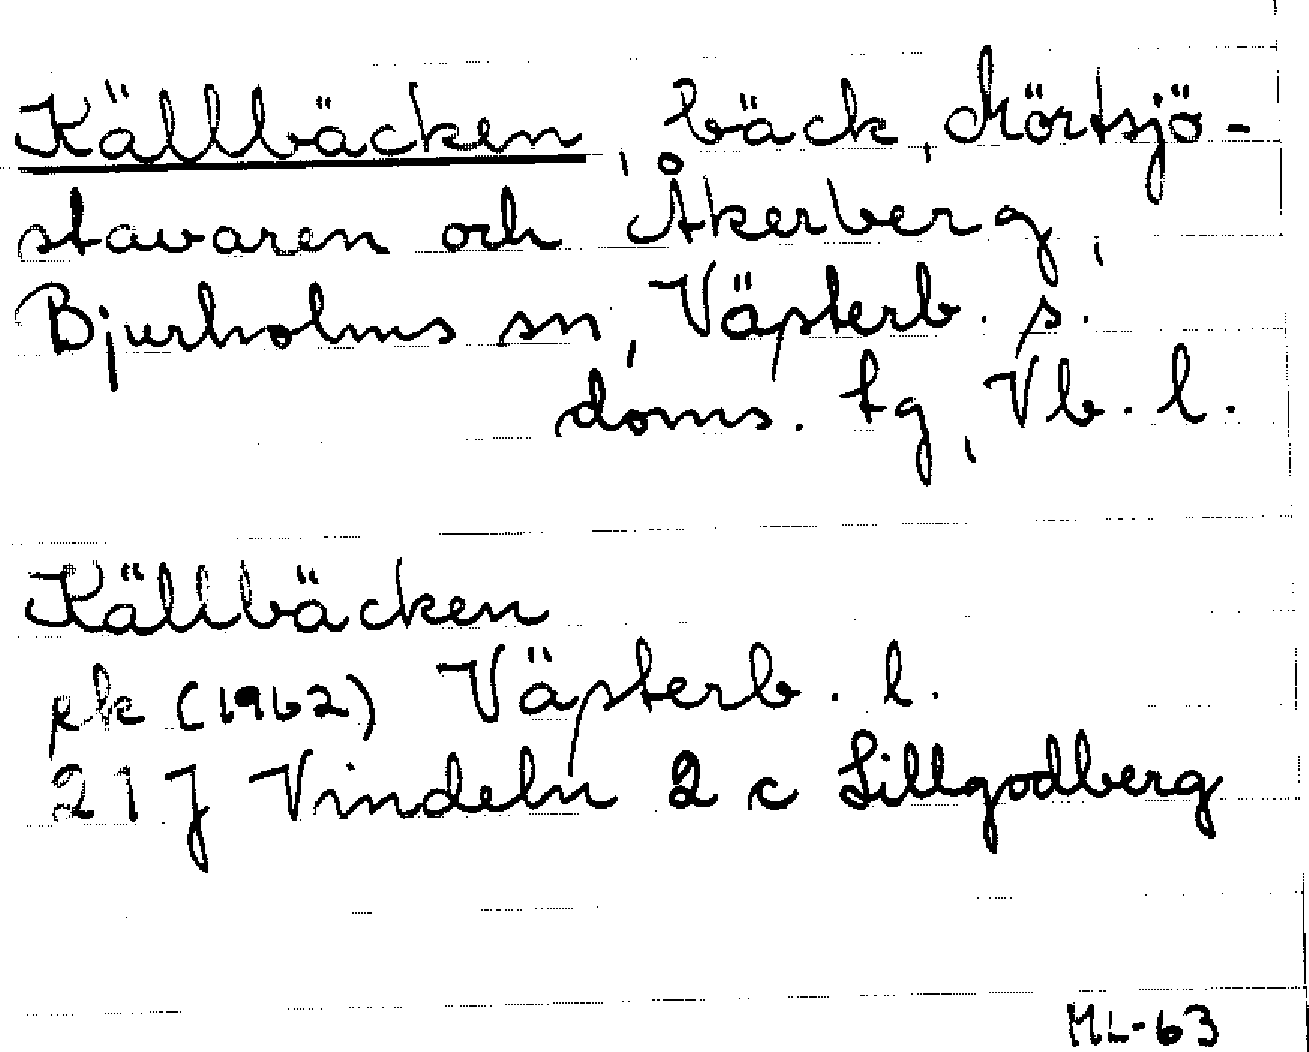 Källbäcken, bäck, Mörtsjö-
stavaren och Åkerberg,
Bjurholms sn, Västerb. s.
doms. tg, Vb. l.
Källbäcken
rk (1962) Västerb. l.
21 J Vindeln 2 c Lillgodberg
ML-63